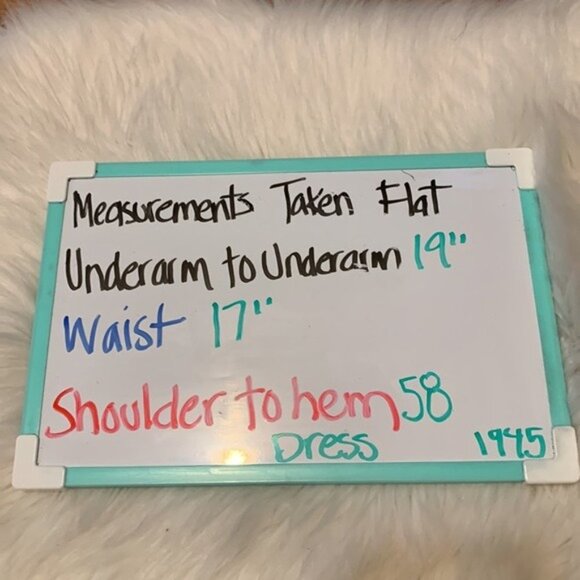 Measurements Taken Flat
Underarm to Underarm 19"
Waist 17"
Shoulder to hem 58
Dress 1945